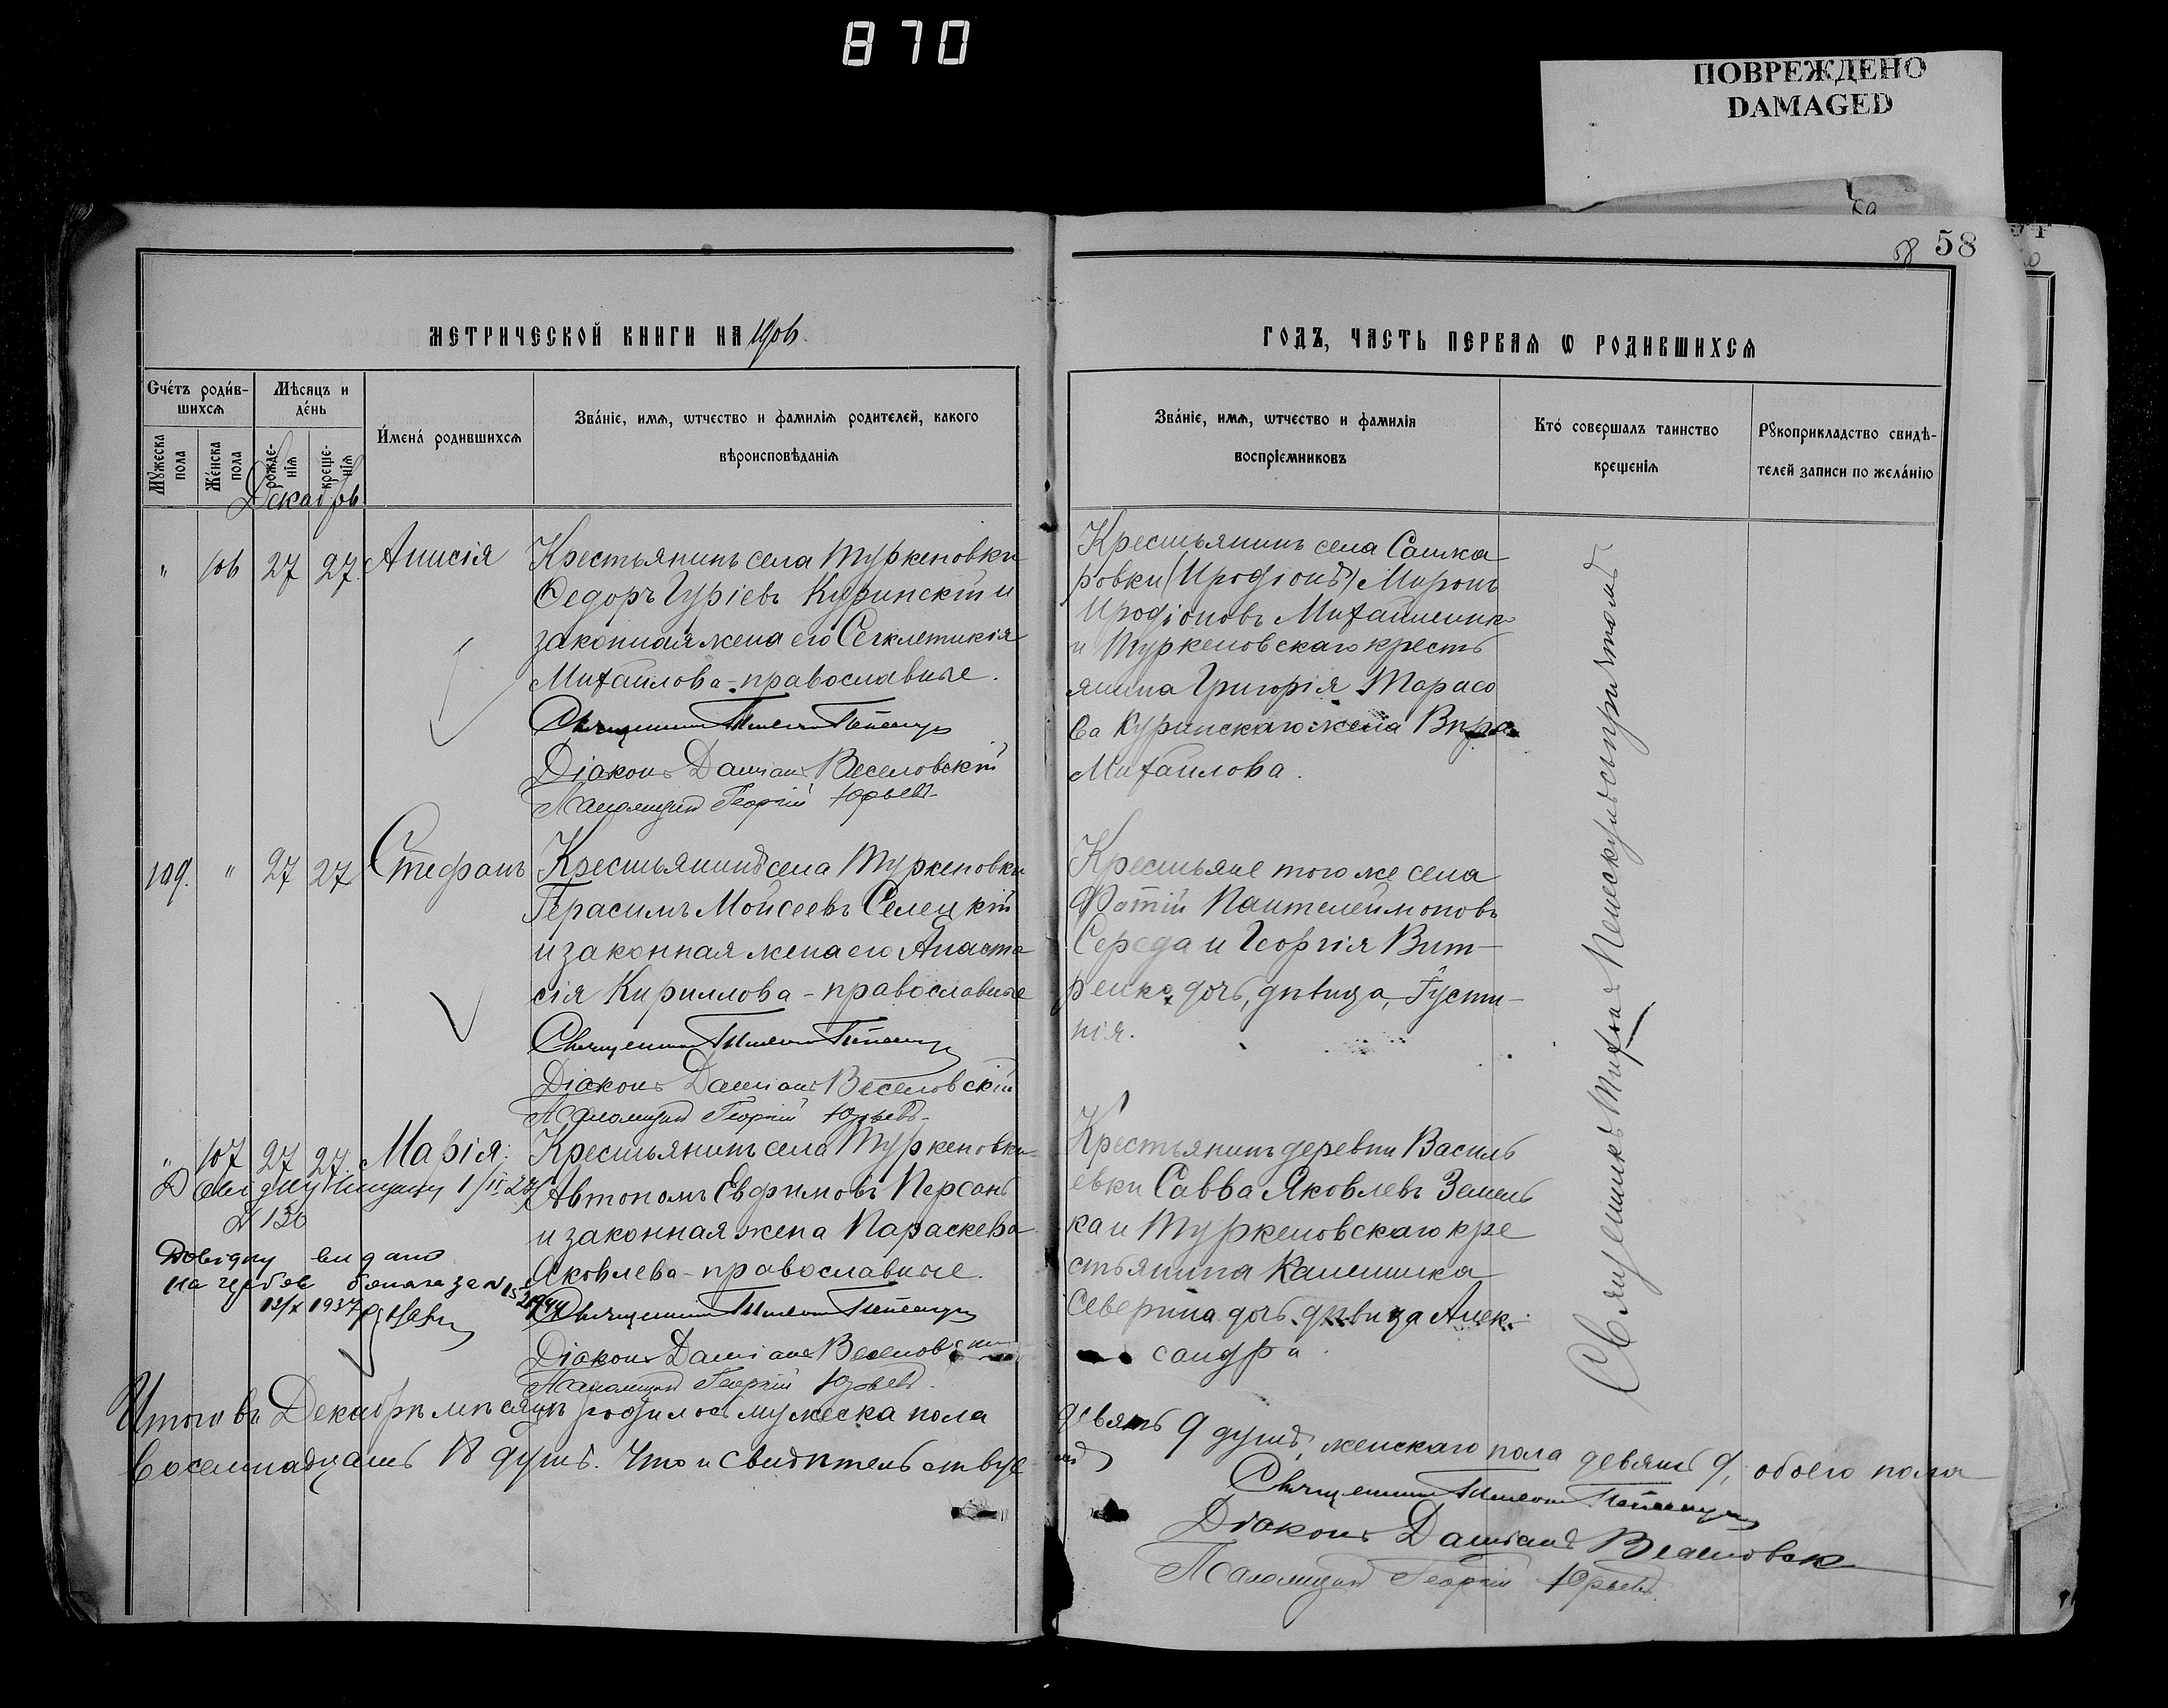 870
ПОВРЕЖДЕНО
DAMAGED
59
58 58
МЕТРИЧЕСКОЙ КНИГИ НА 1906
ГОДЪ, ЧАСТЬ ПЕРВАЯ Ѡ РОДИВШИХСЯ
Счетъ родив-
шихся
Мѣсяцъ и
день
Имена родившихся
Званіе, имя, ѡтчество и фамилія родителей, какого
вѣроисповѣданія
Мужеска
пола
Женска
пола
рожде-
нія
креще-
нія
Декабрь
Званіе, имя, ѡтчество и фамилія
воспріемниковъ
Кто совершалъ таинство
крещенія
Рукоприкладство свидѣ-
телей записи по желанію
" 106 27 27. Анисія
Крестьянинъ села Туркеновки
Ѳедоръ Гуріевъ Куринскій и
законная жена его Сегклетикія
Михаилова - православные.
Священникъ
Діаконъ Даміанъ Веселовскій
Псаломщикъ Георгій Юрьевъ
Крестьянинъ села Сашка
ровки (Иродіонъ) Миронъ
Иродіоновъ Михайленко
и Туркеновскаго кресть
янина Григорія Тарасо
ва Куринскаго жена Вѣра
Михаилова.
109. " 27 27 Стефанъ
Крестьянинъ села Туркеновки
Герасимъ Моисеевъ Селецкій
и законная жена его Анаста
сія Кириллова - православные
Священникъ
Діаконъ Даміанъ Веселовскій
Псаломщикъ Георгій Юрьевъ
Крестьяне того же села
Фотій Пантелеймоновъ
Середа и Георгія Вит-
ренка дочь, дѣвица, Іусти-
нія.
" 107 27 27. Марія.
Крестьянинъ села Туркеновки
Автономъ Евфимовъ Персонъ
и законная жена Параскева
Яковлева - православные.
Священникъ
Діаконъ Даміанъ Веселовскій
Псаломщикъ Георгій Юрьевъ.
№ 130
Довідку видано
12/X 1937 р.
Крестьянинъ деревни Василь
евки Савва Яковлевъ Земель
ка и Туркеновскаго кре
стьянина Калешника
Северина дочь дѣвица Алек-
сандра.
Священникъ
Итого въ Декабрѣ мѣсяцѣ родилось мужеска пола
девять 9 душъ, женскаго пола девять 9, обоего пола
восемнадцать 18 душъ. Что и свидѣтельствуе
мъ
Священникъ
Діаконъ Даміанъ Веселовск
Псаломщикъ Георгій Юрьевъ.